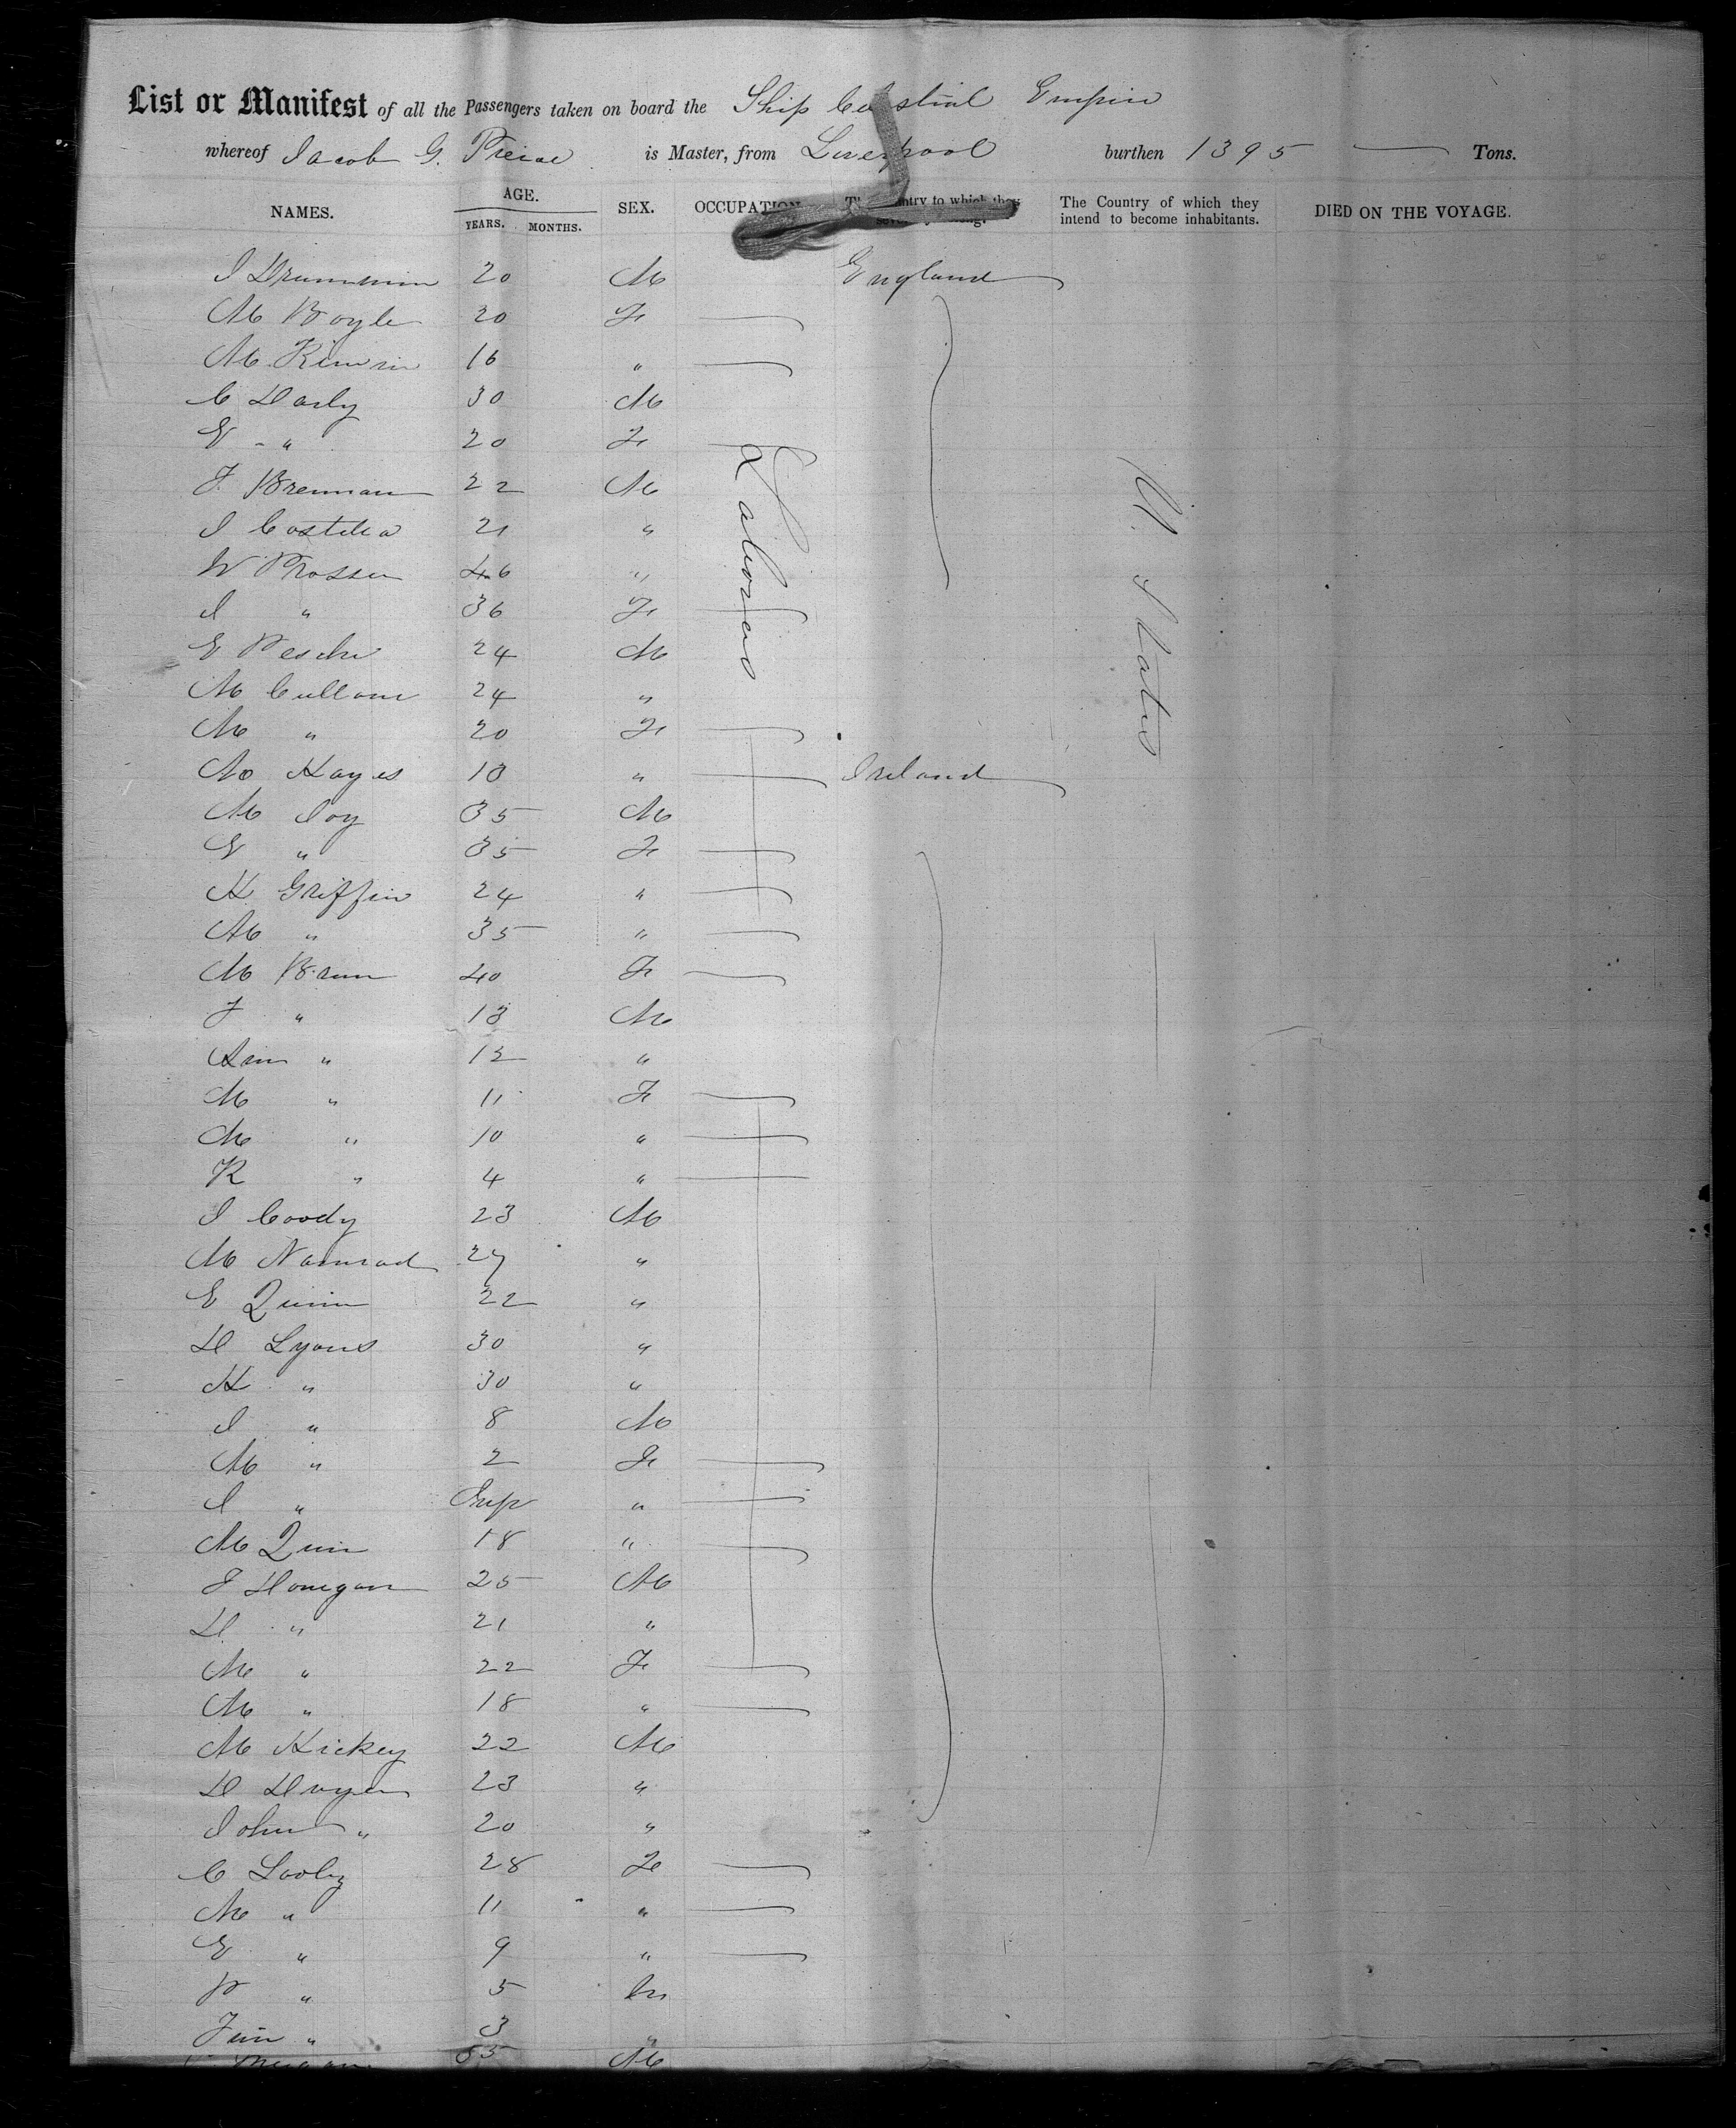 List or Manifest of all the Passengers taken on board the Ship Celestial Empire
whereof Jacob G. is Master, from Liverpool burthen 1395 Tons.
NAMES. AGE. YEARS. MONTHS. SEX. OCCUPATION The Country to which they The Country of which they intend to become inhabitants. DIED ON THE VOYAGE.
J 20 M England
M Boyle 20 Fe
M 16 "
C Darly 30 M
E - " 20 Fe
F. Brennan 22 M
J 21 "
W Prosser 46 "
J " 36 Fe
E 24 M
M Cullom 24 "
M " 20 Fe
M Hayes 18 " Ireland
M Joy 35 M
E " 35 Fe
K Griffin 24 "
M " 35 "
M 40 Fe
J " 13 M
" 12 "
M " 11 Fe
M " 10 "
K " 4 "
J Coody 23 M
M 27 "
E Quinn 22 "
D Lyons 30 "
K " 30 "
J " 8 M
M " 2 Fe
J " Inf "
M Quin 18 "
F Donegan 25 M
D " 21 "
M " 22 Fe
M " 18 "
M Hickey 22 M
D Dwyer 23 "
John " 20 "
C Looby 28 Fe
M " 11 "
E " 9 "
P " 5 M
Jim " 3 "
M
Laborers
U. States